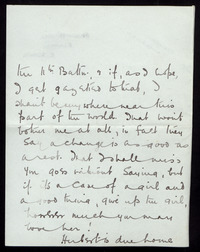 the 11th Battn., & if, as I hope,
I get gazetted to that, I
shan't be anywhere near this
part of the world. That won't
bother me at all, in fact they
say a change is as good as
a rest. That I shall miss
you goes without saying, but
if it's a case of a girl and
a good thing, give up the girl,
however much you may
love her!
Hubert is due home